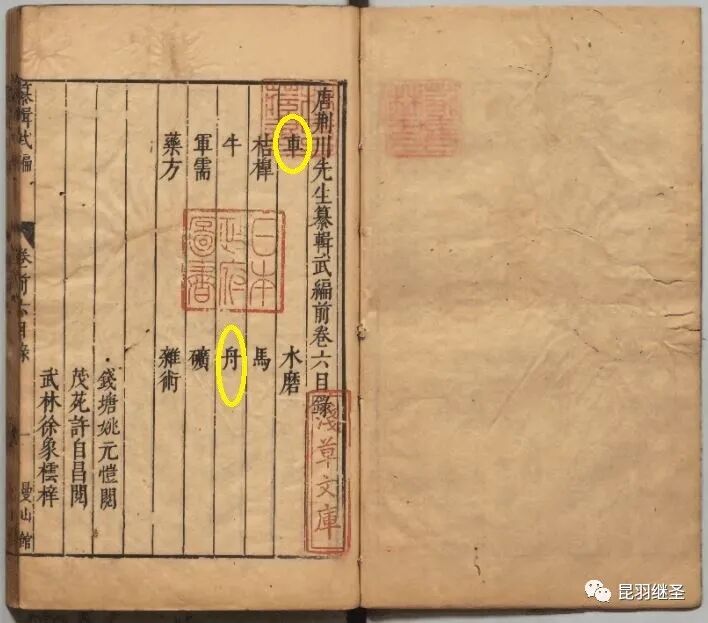 唐荊川先生纂輯武編前卷六目錄
車 水磨
桔槹 馬
牛 舟
軍需 礦
藥方 雜術
錢塘姚元愷閱
茂苑許自昌閱
武林徐象橒梓
纂輯武編 卷前六目錄 一 曼山館
日本政府圖書
淺草文庫
昆羽继圣